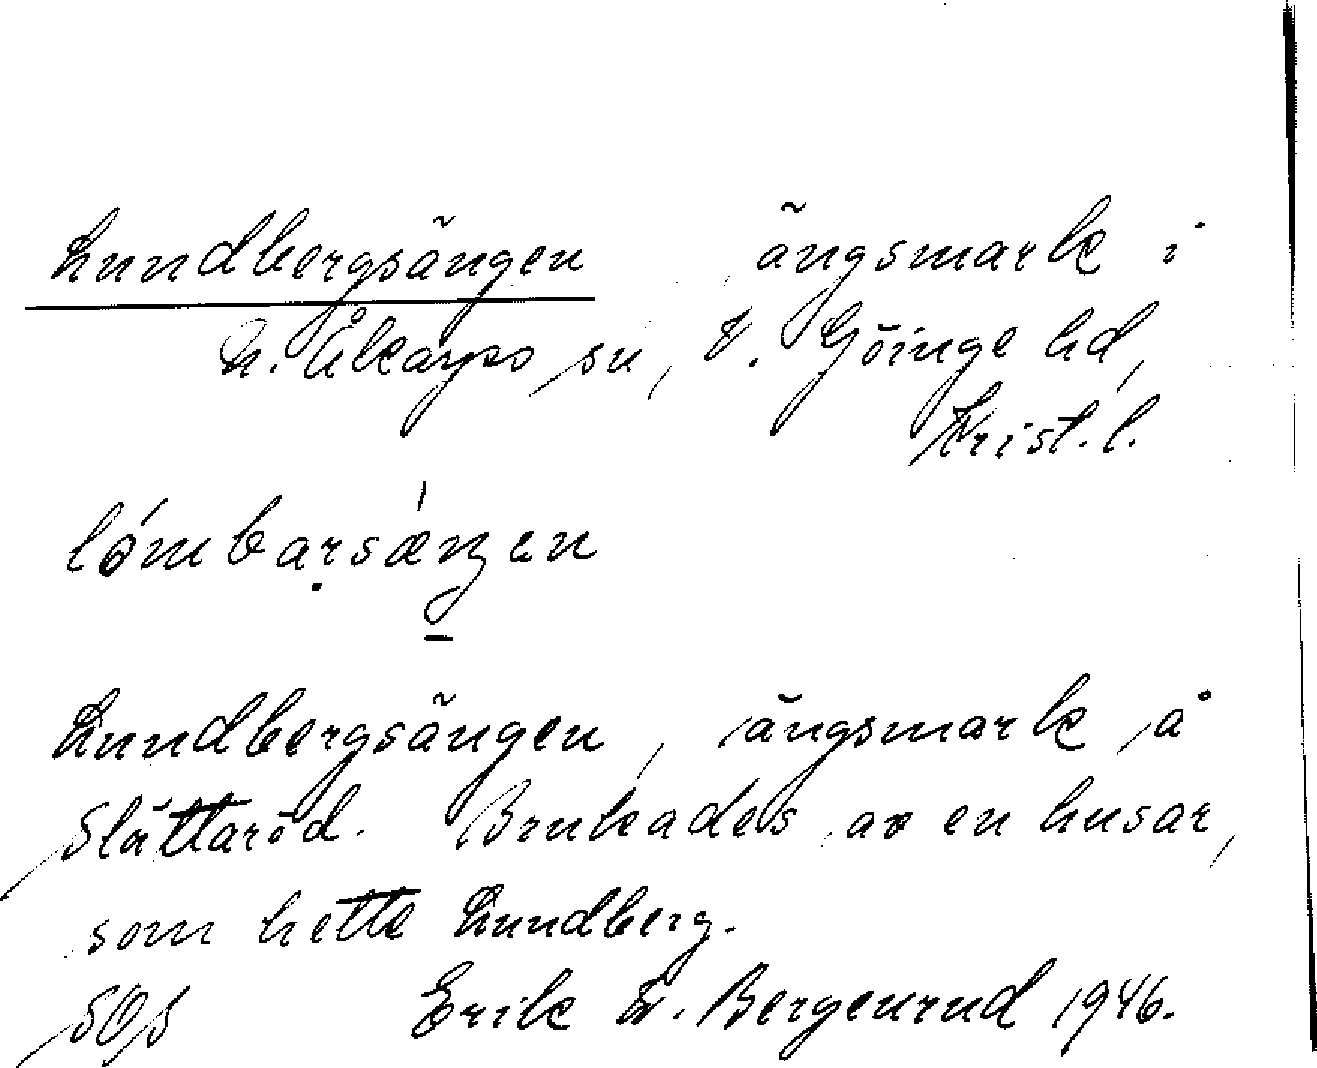 Lundbergsängen ängsmark i
N. Åkarps sn, V. Göinge hd,
Krist. l.
lómbarsǽŋen
Lundbergsängen, ängsmark å
Slättaröd. Brukades av en husar,
som hette Lundberg.
SOS Erik W. Bergenrud 1946.